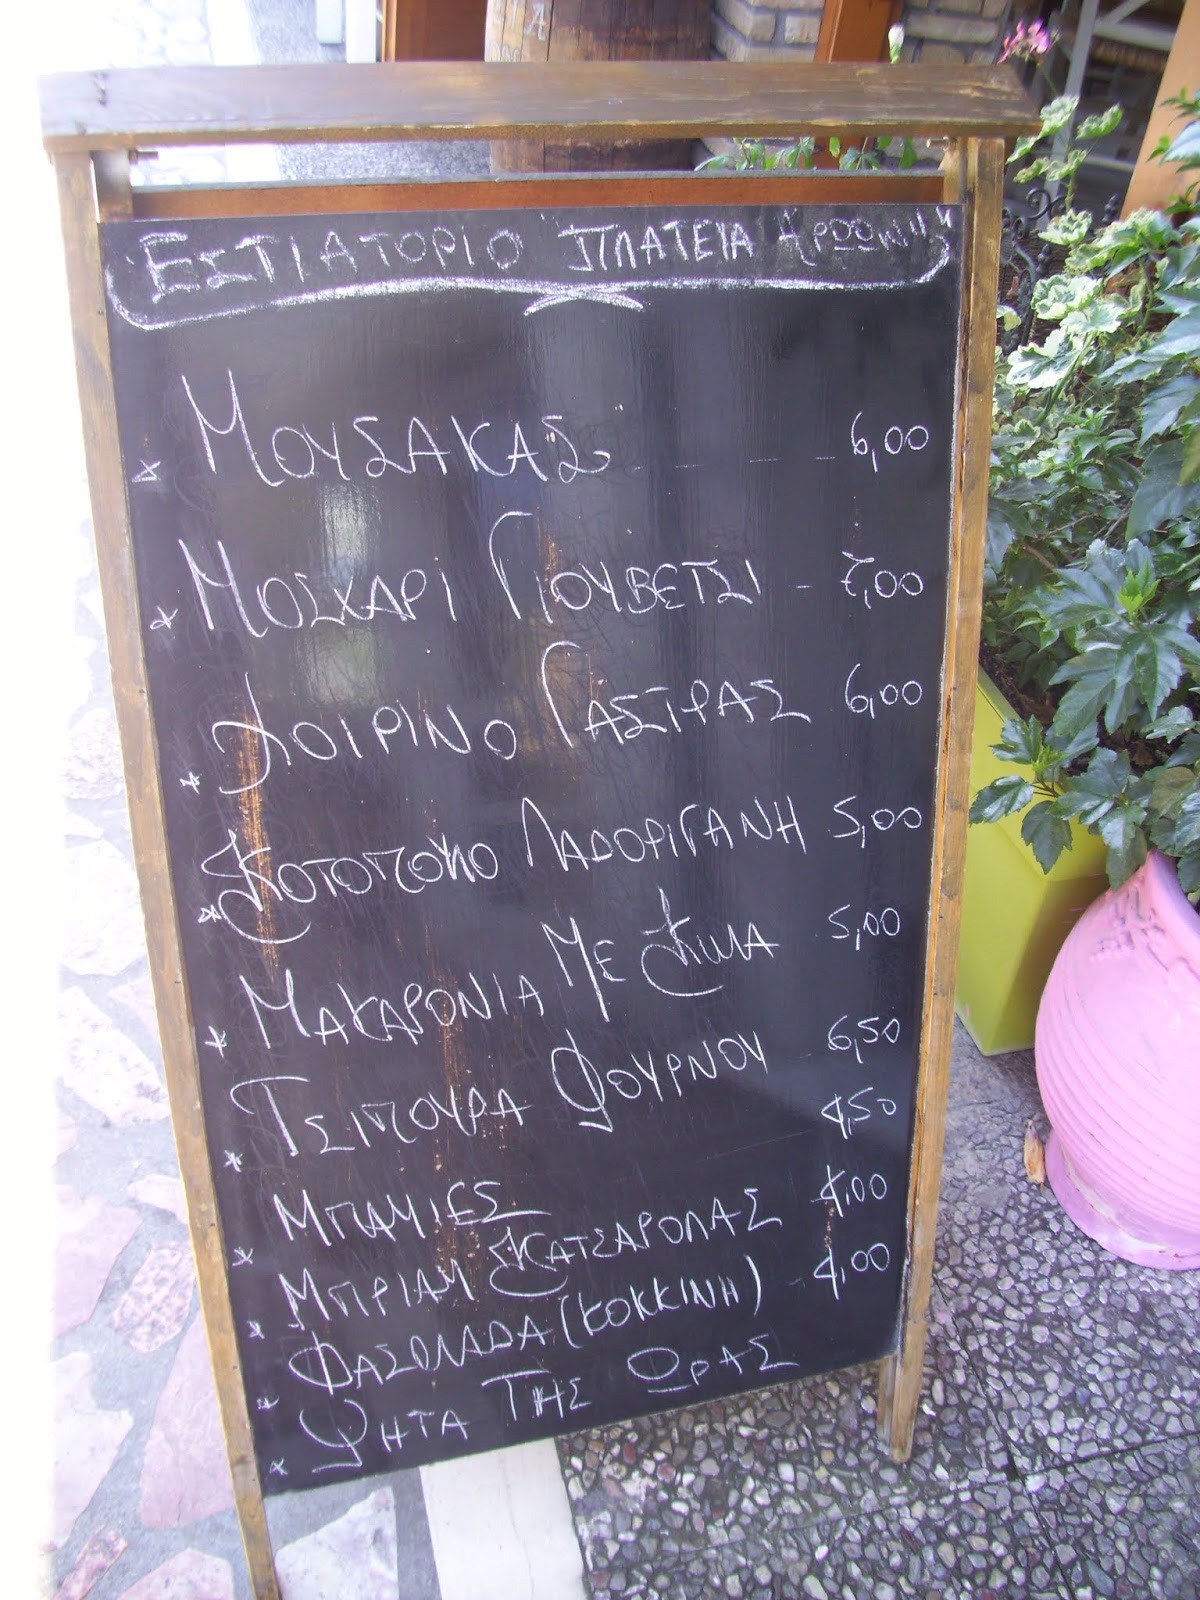 ΕΣΤΙΑΤΟΡΙΟ "ΠΛΑΤΕΙΑ
ΜΟΥΣΑΚΑΣ - - - 6,00
* ΜΟΣΧΑΡΙ ΓΙΟΥΒΕΤΣΙ - 7,00
* ΧΟΙΡΙΝΟ ΓΑΣΤΡΑΣ 6,00
* ΚΟΤΟΠΟΥΛΟ ΛΑΔΟΡΙΓΑΝΗ 5,00
* ΜΑΚΑΡΟΝΙΑ ΜΕ ΚΙΜΑ 5,00
* ΤΣΙΠΟΥΡΑ ΦΟΥΡΝΟΥ 6,50
* ΜΠΑΜΙΕΣ 4,50
* ΜΠΡΙΑΜ ΚΑΤΣΑΡΟΛΑΣ 4,00
* ΦΑΣΟΛΑΔΑ (ΚΟΚΚΙΝΗ) - 4,00
* ΨΗΤΑ ΤΗΣ ΩΡΑΣ